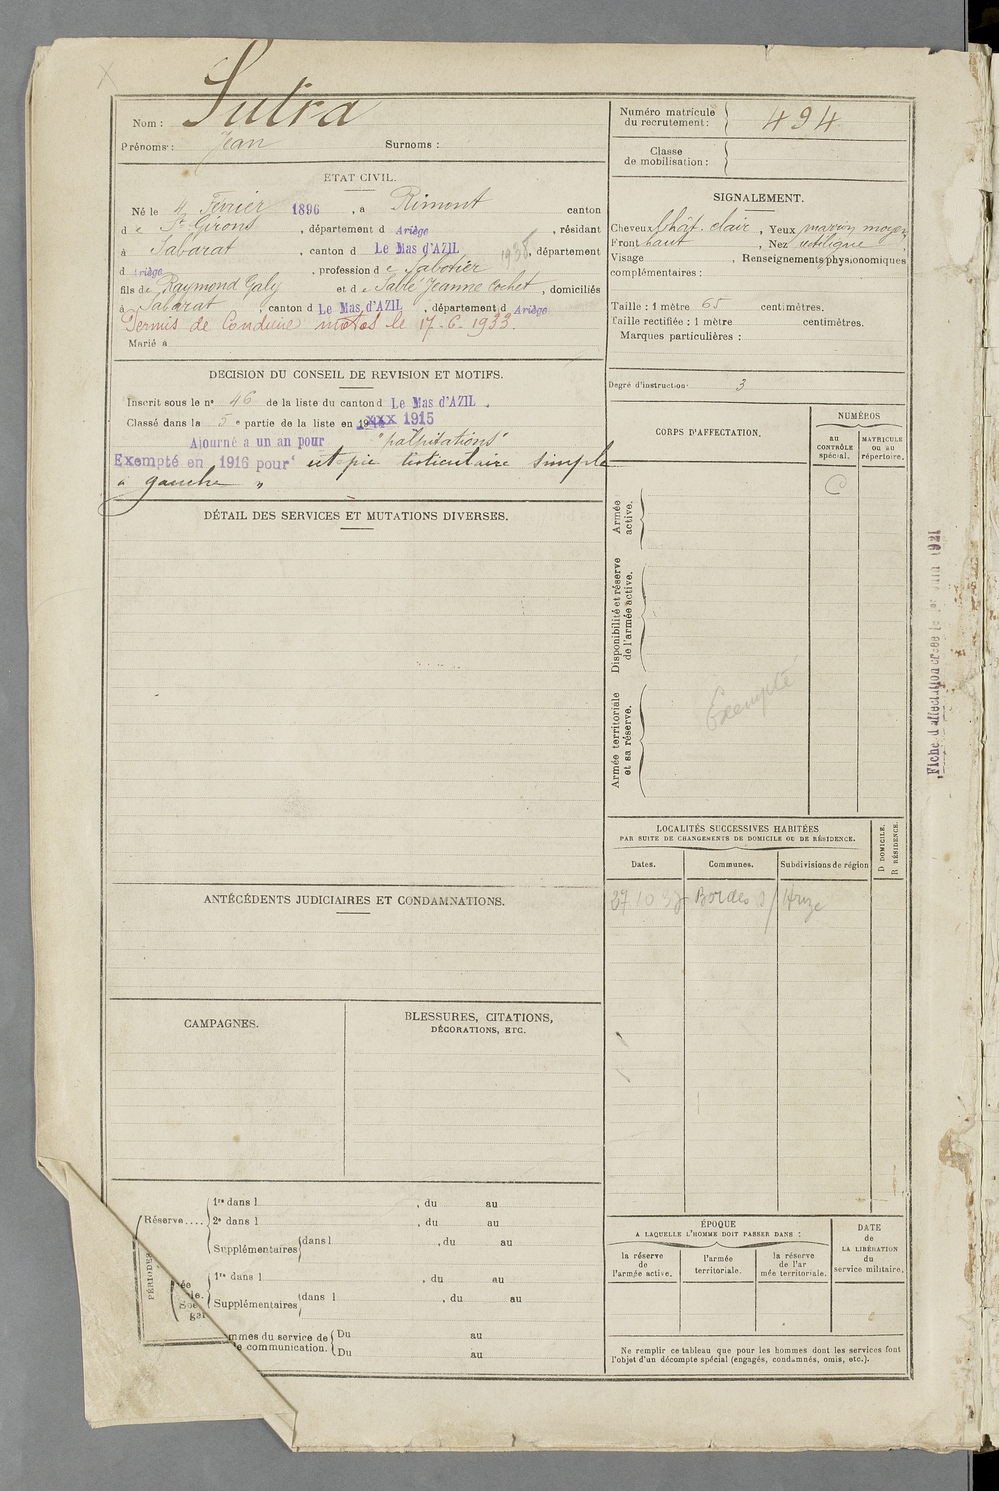 Nom : Sutra
Prénoms : Jean Surnoms :
ÉTAT CIVIL.
Né le 4 Février 1896, à Rimont canton
de St Girons, département d Ariège, résidant
à Sabarat, canton d Le Mas d'AZIL, département
d riège, profession de Sabotier
fils de Raymond Galy et de Sablé Jeanne Cochet, domiciliés
à Sabarat, canton d Le Mas d'AZIL, département d Ariège
Permis de Conduire motos le 17-6-1933.
Marié à
DECISION DU CONSEIL DE REVISION ET MOTIFS.
Inscrit sous le n° 46 de la liste du canton d Le Mas d'AZIL.
Classé dans la 5e partie de la liste en 19 xxx 1915
Ajourné a un an pour "palpitations"
Exempté en 1916 pour "ectopie testiculaire simple
à gauche"
DÉTAIL DES SERVICES ET MUTATIONS DIVERSES.
ANTÉCÉDENTS JUDICIAIRES ET CONDAMNATIONS.
CAMPAGNES.
BLESSURES, CITATIONS,
DÉCORATIONS, ETC.
PÉRIODES
Réserve....
1re dans l , du au
2e dans l , du au
Supplémentaires dans l , du au
1re dans l , du au
Supplémentaires dans l , du au
mmes du service de
e communication.
Du au
Du au
Numéro matricule
du recrutement : 494
Classe
de mobilisation :
SIGNALEMENT.
Cheveux Chât. clair, Yeux marron moyen
Front haut, Nez rectiligne
Visage , Renseignements physionomiques
complémentaires :
Taille : 1 mètre 65 centimètres.
Taille rectifiée : 1 mètre centimètres.
Marques particulières :
Degré d'instruction 3
CORPS D'AFFECTATION.
NUMÉROS
au
CONTRÔLE
spécial.
MATRICULE
ou au
répertoire.
C
Armée
active.
Disponibilité et réserve
de l'armée active.
Armée territoriale
et sa réserve.
Exempté
LOCALITÉS SUCCESSIVES HABITÉES
PAR SUITE DE CHANGEMENTS DE DOMICILE OU DE RÉSIDENCE.
D DOMICILE.
R RÉSIDENCE.
Dates. Communes. Subdivisions de région
Bordes s/
ÉPOQUE
A LAQUELLE L'HOMME DOIT PASSER DANS :
la réserve
de
l'armée active.
l'armée
territoriale.
la réserve
de l'ar
mée territoriale.
DATE
de
LA LIBÉRATION
du
service militaire.
Ne remplir ce tableau que pour les hommes dont les services font
l'objet d'un décompte spécial (engagés, condamnés, omis, etc.).
Fiche d'affectation créée le 1921